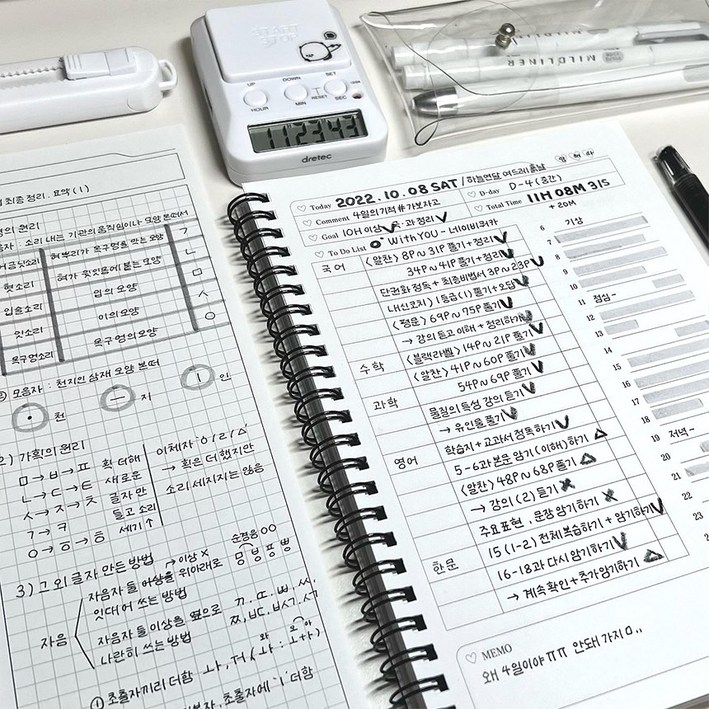 START
STOP
UP
DOWN
SET
HOUR
MIN
RESET
SEC
112343
dretec
MILDLINER
MILDLINER
최종 정리. 요약 (1)
의 원리
음자 : 소리 내는 기관의 움직임이나 모양 본떠서
어금닛소리 혀뿌리가 목구멍을 막는 모양 ㄱ
혓소리 혀가 윗잇몸에 붙는 모양 ㄴ
입술소리 입의 모양 ㅁ
잇소리 이의 모양 ㅅ
목구멍소리 목구멍의 모양 ㅇ
② 모음자 : 천지인 삼재 모양 본떠
· 천 ㅡ 지 ㅣ 인
2) 가획의 원리
ㅁ → ㅂ → ㅍ 획 더해
ㄴ → ㄷ → ㅌ 새로운
ㅅ → ㅈ → ㅊ 글자 만
ㄱ → ㅋ 들고 소리
ㅇ → ㆆ → ㅎ 세기 ↑
이체자 : ㆁ / ㄹ / ㅿ
→ 획은 더했지만
소리 세지지는 않음
3) 그 외 글자 만든 방법
자음
자음자 둘 이상을 위아래로
이상 x
잇대어 쓰는 방법
순경음
ㅱ ㅸ ㆄ ㅹ
자음자 둘 이상을 옆으로
나란히 쓰는 방법
ㄲ. ㄸ. ㅃ. ㅆ.
ㅉ, ㅂㄷ. ㅂㅅ
① 초출자끼리 더함 ㅘ, ㅝ
초출자에 'ㅣ' 더함
Today 2022.10.08 SAT / 하늘연달 여드레 흙날
Comment 4월의 기적 #가보자고
D-day D-4 (중간)
Goal 10H 이상 V 국·과 정리 V
Total Time 11H 08M 31S
To Do List With YOU - 네이비쿼카
국어 <알찬> 8P ~ 31P 풀기 + 정리 V
34P ~ 41P 풀기 + 정리 V
단권화 정독 + 최종비법서 3P ~ 23P V
내신코치) 1등급 (1) 풀기 + 오답 V
<평문> 69P ~ 75P 풀기 V
→ 강의 듣고 이해 + 정리하기 V
수학 <블랙라벨> 14P ~ 21P 풀기 V
과학 <알찬> 41P ~ 60P 풀기 V
54P ~ 69P 풀기 V
물질의 특성 강의 듣기 V
→ 유인물 풀기 V
영어 학습지 + 교과서 정독하기 V
5-6과 본문 암기 (이해) 하기 △
<알찬> 48P ~ 68P 풀기 △
→ 강의 (2) 듣기 X
주요표현, 문장 암기하기 X
한문 15 (1-2) 전체 복습하기 + 암기하기 V
16-18과 다시 암기하기 V
→ 계속 확인 + 추가 암기하기 △
6 기상
7
8
9
10
11
12 점심 -
13
14
15
16
17
18
19 저녁 -
20
21
22
23
24
MEMO
왜 4일이야 ㅠㅠ 안돼 가지마..